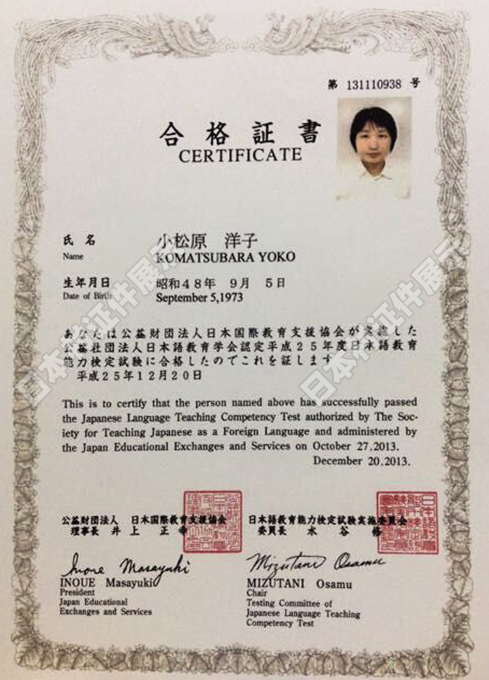 第 131110938 号
合格証書
CERTIFICATE
氏名 小松原 洋子
Name KOMATSUBARA YOKO
生年月日 昭和48年 9月 5日
Date of Birth September 5,1973
あなたは公益財団法人日本国際教育支援協会が実施した
公益社団法人日本語教育学会認定平成25年度日本語教育
能力検定試験に合格したのでこれを証します
平成25年12月20日
This is to certify that the person named above has successfully passed
the Japanese Language Teaching Competency Test authorized by The Soc-
iety for Teaching Japanese as a Foreign Language and administered by
the Japan Educational Exchanges and Services on October 27,2013.
December 20,2013.
公益財団法人 日本国際教育支援協会
理事長 井上 正幸
日本語教育能力検定試験実施委員会
委員長 水谷 修
Inoue Masayuki
Mizutani Osamu
INOUE Masayuki
President
Japan Educational
Exchanges and Services
MIZUTANI Osamu
Chair
Testing Committee of
Japanese Language Teaching
Competency Test
日本村证件展示
日本村证件展示